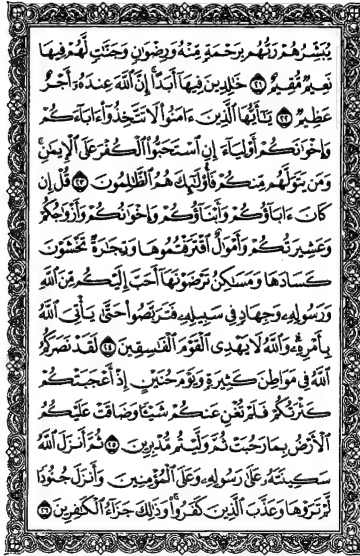 يُبَشِّرُهُمْ رَبُّهُم بِرَحْمَةٍ مِّنْهُ وَرِضْوَٰنٍ وَجَنَّٰتٍ لَّهُمْ فِيهَا
نَعِيمٌ مُّقِيمٌ ٢١ خَٰلِدِينَ فِيهَآ أَبَدًا إِنَّ ٱللَّهَ عِندَهُۥٓ أَجْرٌ
عَظِيمٌ ٢٢ يَٰٓأَيُّهَا ٱلَّذِينَ ءَامَنُوا۟ لَا تَتَّخِذُوٓا۟ ءَابَآءَكُمْ
وَإِخْوَٰنَكُمْ أَوْلِيَآءَ إِنِ ٱسْتَحَبُّوا۟ ٱلْكُفْرَ عَلَى ٱلْإِيمَٰنِ ۚ
وَمَن يَتَوَلَّهُم مِّنكُمْ فَأُو۟لَٰٓئِكَ هُمُ ٱلظَّٰلِمُونَ ٢٣ قُلْ إِن
كَانَ ءَابَآؤُكُمْ وَأَبْنَآؤُكُمْ وَإِخْوَٰنُكُمْ وَأَزْوَٰجُكُمْ
وَعَشِيرَتُكُمْ وَأَمْوَٰلٌ ٱقْتَرَفْتُمُوهَا وَتِجَٰرَةٌ تَخْشَوْنَ
كَسَادَهَا وَمَسَٰكِنُ تَرْضَوْنَهَآ أَحَبَّ إِلَيْكُم مِّنَ ٱللَّهِ
وَرَسُولِهِۦ وَجِهَادٍ فِى سَبِيلِهِۦ فَتَرَبَّصُوا۟ حَتَّىٰ يَأْتِىَ ٱللَّهُ
بِأَمْرِهِۦ ۗ وَٱللَّهُ لَا يَهْدِى ٱلْقَوْمَ ٱلْفَٰسِقِينَ ٢٤ لَقَدْ نَصَرَكُمُ
ٱللَّهُ فِى مَوَاطِنَ كَثِيرَةٍ وَيَوْمَ حُنَيْنٍ إِذْ أَعْجَبَتْكُمْ
كَثْرَتُكُمْ فَلَمْ تُغْنِ عَنكُمْ شَيْـًٔا وَضَاقَتْ عَلَيْكُمُ
ٱلْأَرْضُ بِمَا رَحُبَتْ ثُمَّ وَلَّيْتُم مُّدْبِرِينَ ٢٥ ثُمَّ أَنزَلَ ٱللَّهُ
سَكِينَتَهُۥ عَلَىٰ رَسُولِهِۦ وَعَلَى ٱلْمُؤْمِنِينَ وَأَنزَلَ جُنُودًا
لَّمْ تَرَوْهَا وَعَذَّبَ ٱلَّذِينَ كَفَرُوا۟ ۚ وَذَٰلِكَ جَزَآءُ ٱلْكَٰفِرِينَ ٢٦